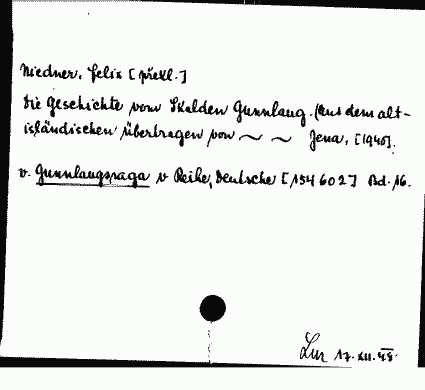 Niedner, Felix [překl.]
Die Geschichte vom Skalden Gunnlaug. (Aus dem alt-
isländischen übertragen von ~ ~ Jena, [1940].
v. Gunnlaugssaga v Reihe, Deutsche [154 602] Bd. 16.
17. XII. 48.